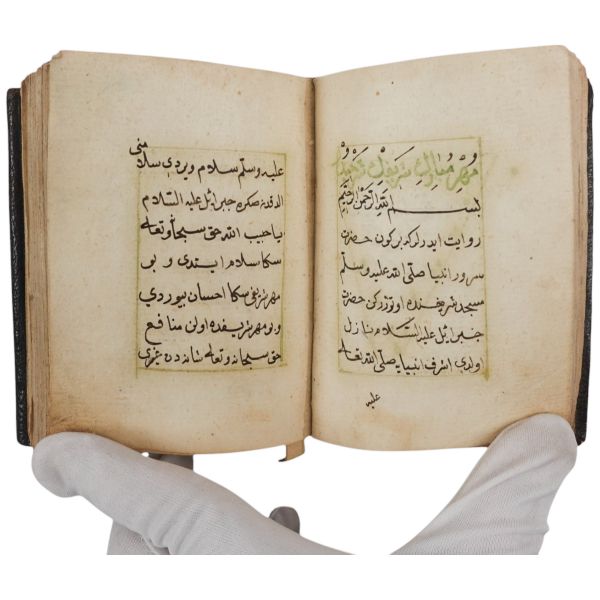 مُهْر مُبَارَكِ شَرِيفِكْ
بسم الله الرحمن الرحيم
روايت ايدرلركه بركون حضرت
سرور انبيا صلى الله عليه وسلم
مسجد شريفنده اوتورركن حضرت
جبرائيل عليه السلام نازل
اولدى اشرف انبيايه صلى الله تعالى
عليه
عليه وسلم سلام ويردى سلامنى
الدقدنصكره جبرائيل عليه السلام
يا حبيب الله حق سبحانه وتعالى
سكا سلام ايتدى و بو
مهر شريفى سكا احسان بيوردي
و بو مهر شريفده اولن منافع
حق سبحانه وتعالى شانه دن غيري